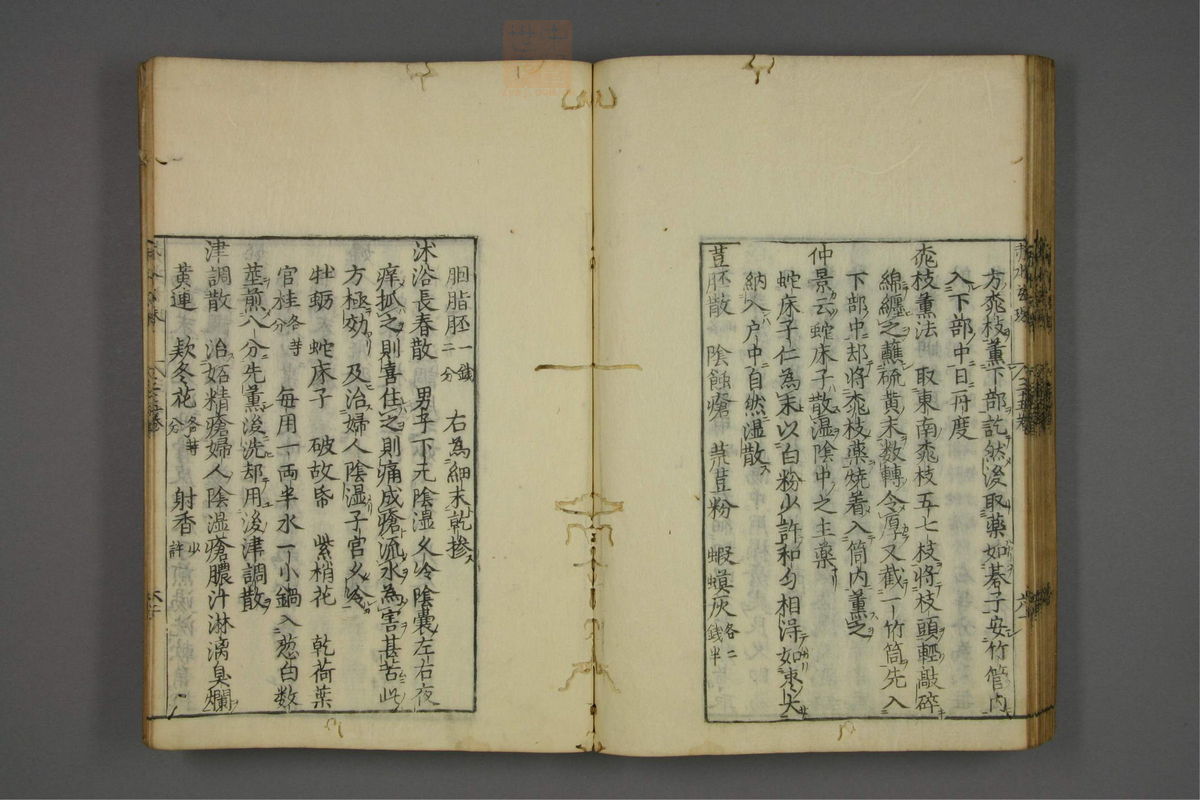 方桃枝薫下部訖然後取薬如碁子安竹管内
入下部中日再度
桃枝薫法 取東南桃枝五七枝将枝頭軽敲砕
綿纏之蘸硫黄末数轉令厚又截一竹筒先入
下部中却将桃枝薬焼着入筒内薫之
仲景云蛇床子散温陰中之主薬
蛇床子仁為末以白粉少許和匀相得如棗大
納入戸中自然温散
荳胚散 陰蝕瘡 菉荳粉 蝦蟆灰各二銭半
胭脂胚一銭二分 右為細末乾摻
沐浴長春散 男子下元陰湿久冷陰嚢左右夜
痒抓之則喜住之則痛成瘡流水為害甚苦此
方極効 及治婦人陰湿子官久冷
牡蛎 蛇床子 破故㫮 紫梢花 乾荷葉
官桂各等分 毎用一両半水一小鍋入葱白数
莖煎八分先薫後洗却用後津調散
津調散 治妬精瘡婦人陰湿瘡膿汁淋漓臭爛
黄連 欵冬花各等分 射香少許